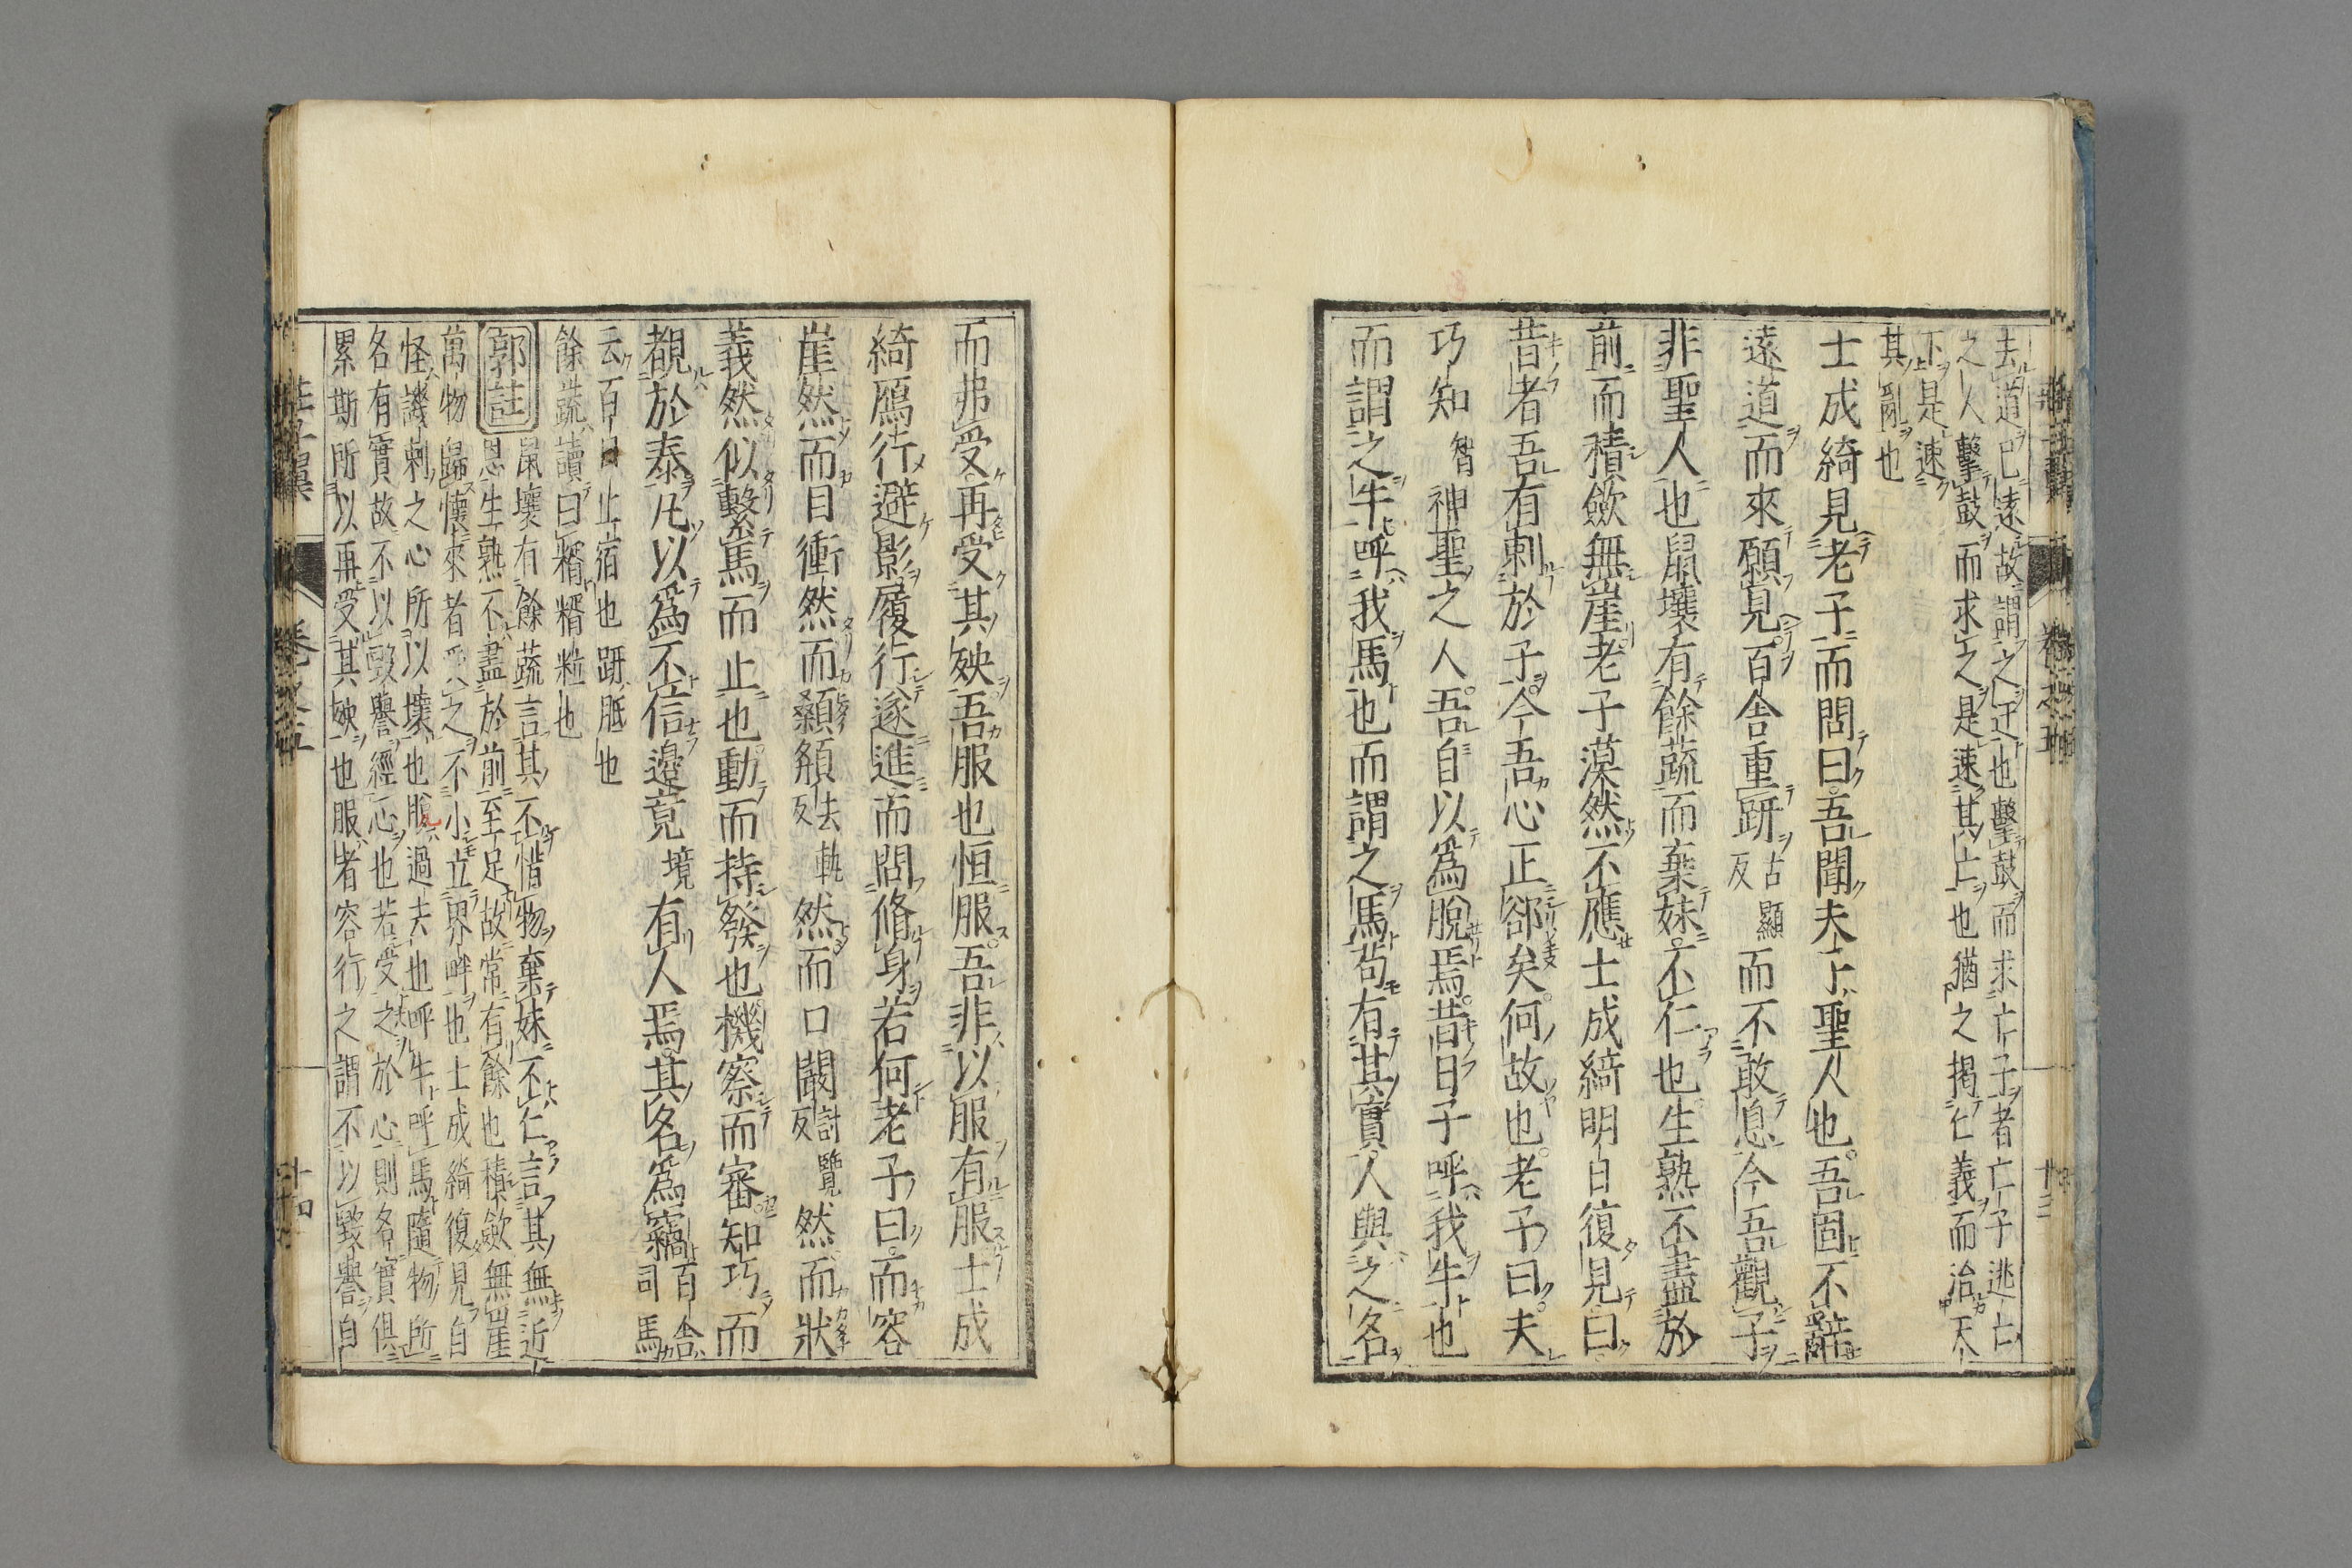 去道已遠故謂之迂也擊鼓而求亡子者亡子逃亡
之人擊鼓而求之是速其亡也猶之揭仁義而治天
下是速
其亂也
士成綺見老子而問曰吾聞夫子聖人也吾固不辭
遠道而來願見百舍重趼古顯反而不敢息今吾觀子
非聖人也鼠壤有餘蔬而棄妹不仁也生熟不盡於
前而積斂無崖老子漠然不應士成綺明日復見曰
昔者吾有刺於子今吾心正郤矣何故也老子曰夫
巧知智神聖之人吾自以為脫焉昔日子呼我牛也
而謂之牛呼我馬也而謂之馬苟有其實人與之名
而弗受再受其殃吾服也恒服吾非以服有服士成
綺鴈行避影履行遂進而問脩身若何老子曰而容
崖然而目衝然而顙頯去軌反然而口闞許覽反然而狀
義然似繫馬而止也動而持發也機察而審知巧而
覩於泰凡以為不信邊竟境有人焉其名為竊百舍司馬
云百日止宿也趼胝也
餘蔬讀曰糈糈粒也
郭註鼠壤有餘蔬言其不惜物棄妹不仁言其無近
恩生熟不盡於前至足故常有餘也積斂無崖
萬物歸懷來者受之不小立界畔也士成綺復見自
怪譏刺之心所以壞也脫過去也呼牛呼馬隨物所
名有實故不以毀譽經心也若受之於心則名實俱
累斯所以再受其殃也服者容行之謂不以毀譽自
莊子翼 卷之五 十四